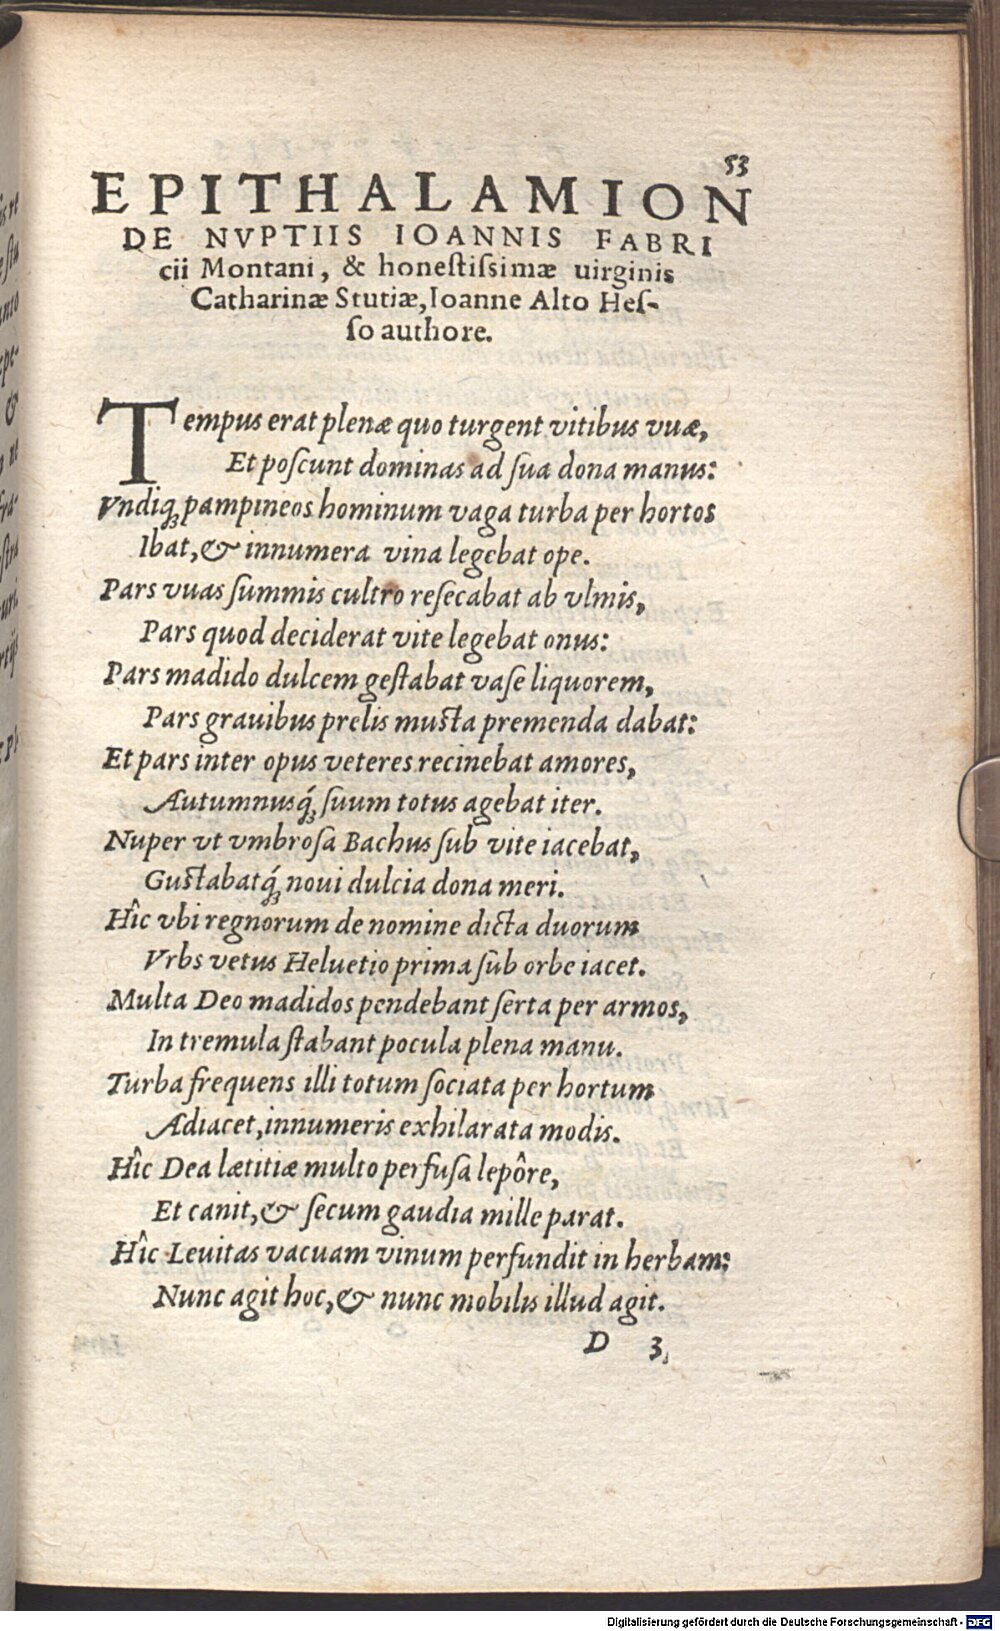 53
EPITHALAMION
DE NVPTIIS IOANNIS FABRI
cii Montani, & honestiſsimæ uirginis
Catharinæ Stutiæ, Ioanne Alto Heſ-
ſo authore.
Tempus erat plenæ quo turgent vitibus vuæ,
Et poſcunt dominas ad ſua dona manus:
Vndiq; pampineos hominum vaga turba per hortos
Ibat, & innumera vina legebat ope.
Pars vuas ſummis cultro reſecabat ab vlmis,
Pars quod deciderat vite legebat onus:
Pars madido dulcem geſtabat vaſe liquorem,
Pars grauibus prelis musta premenda dabat:
Et pars inter opus veteres recinebat amores,
Autumnusq́; ſuum totus agebat iter.
Nuper vt vmbroſa Bachus ſub vite iacebat,
Gustabatq́; noui dulcia dona meri.
Hîc vbi regnorum de nomine dicta duorum
Vrbs vetus Heluetio prima ſub orbe iacet.
Multa Deo madidos pendebant ſerta per armos,
In tremula ſtabant pocula plena manu.
Turba frequens illi totum ſociata per hortum
Adiacet, innumeris exhilarata modis.
Hîc Dea lætitiæ multo perfuſa lepôre,
Et canit, & ſecum gaudia mille parat.
Hîc Leuitas vacuam vinum perfundit in herbam:
Nunc agit hoc, & nunc mobilis illud agit.
D 3
Digitalisierung gefördert durch die Deutsche Forschungsgemeinschaft - DFG